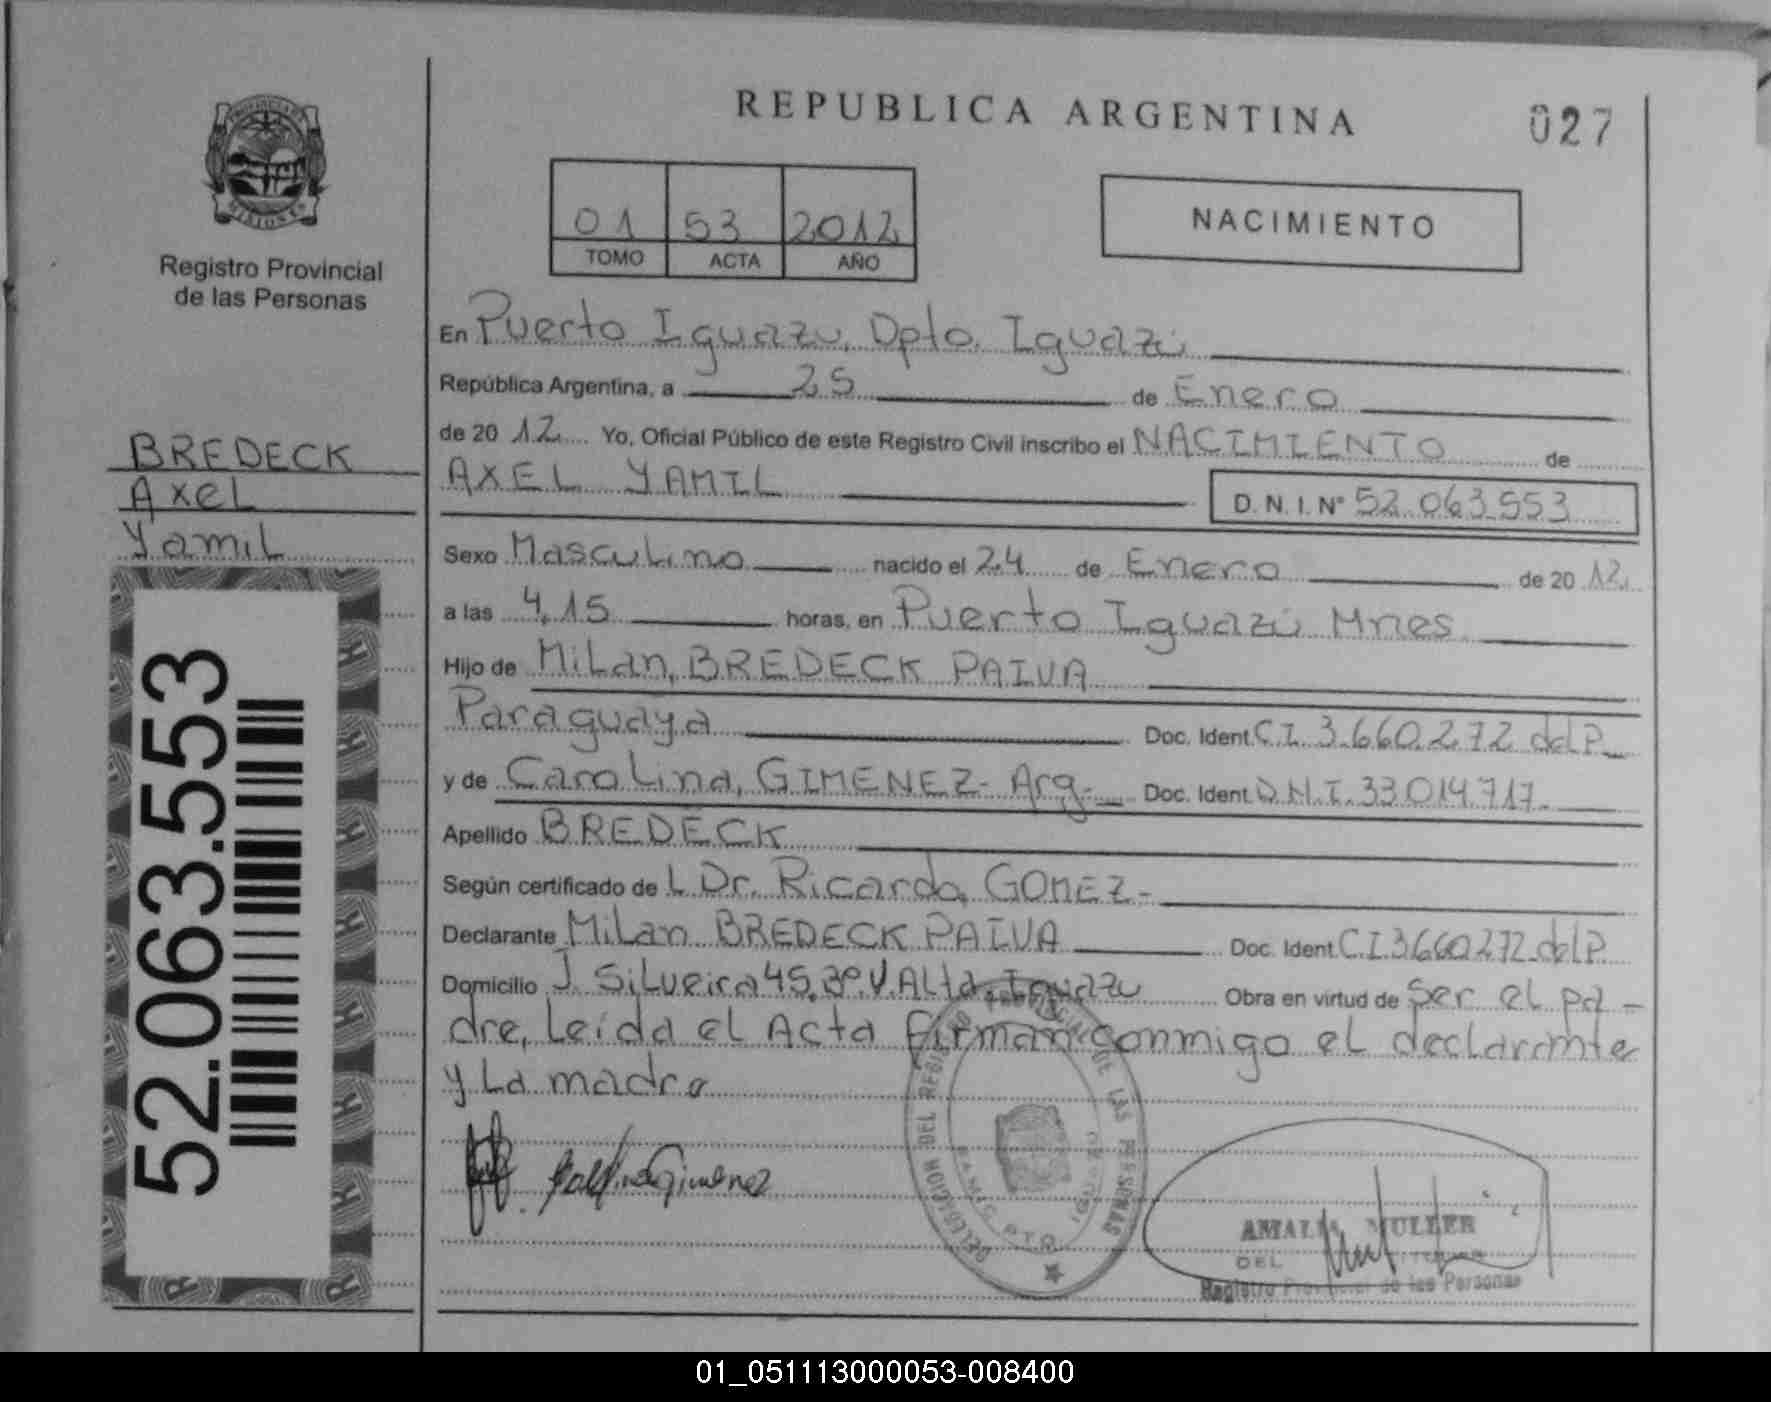 PROVINCIA DE
MISIONES
Registro Provincial
de las Personas
BREDECK
Axel
Yamil
52.063.553
REPUBLICA ARGENTINA
027
01 53 2012
TOMO ACTA AÑO
NACIMIENTO
En Puerto Iguazu, Dpto. Iguazú
República Argentina, a 25 de Enero
de 20 12 Yo, Oficial Público de este Registro Civil inscribo el NACIMIENTO de
AXEL YAMIL D.N.I. Nº 52.063.553
Sexo Masculino nacido el 24 de Enero de 20 12
a las 4,15 horas, en Puerto Iguazú Mnes
Hijo de Milan, BREDECK PAIVA
Paraguaya Doc. Ident. C.I. 3.660.272 del P.
y de Carolina, GIMENEZ - Arg. - Doc. Ident. D.N.I. 33.014.717
Apellido BREDECK
Según certificado de L Dr. Ricardo, GOMEZ -
Declarante Milan BREDECK PAIVA Doc. Ident. C.I. 3660272 del P.
Domicilio J. Silveira 45, Bº. V. Alta, Iguazu Obra en virtud de ser el pa-
dre, Leida el Acta firman conmigo el declarante
y La madre
Gimenez
DELEGACION DEL REGISTRO PROVINCIAL DE LAS PERSONAS
PTO. IGUAZU
AMALIA MULLER
DEL
Registro Provincial de las Personas
01_051113000053-008400